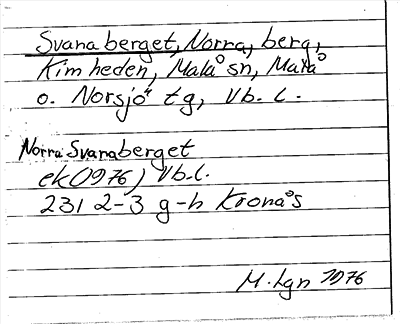 Svanaberget, Norra, berg,
Kimheden, Malå sn, Malå
o. Norsjö tg, Vb. l.
Norra Svanaberget
ek(1976) Vb.l.
231 2-3 g-h Kronås
M. Lgn 1976